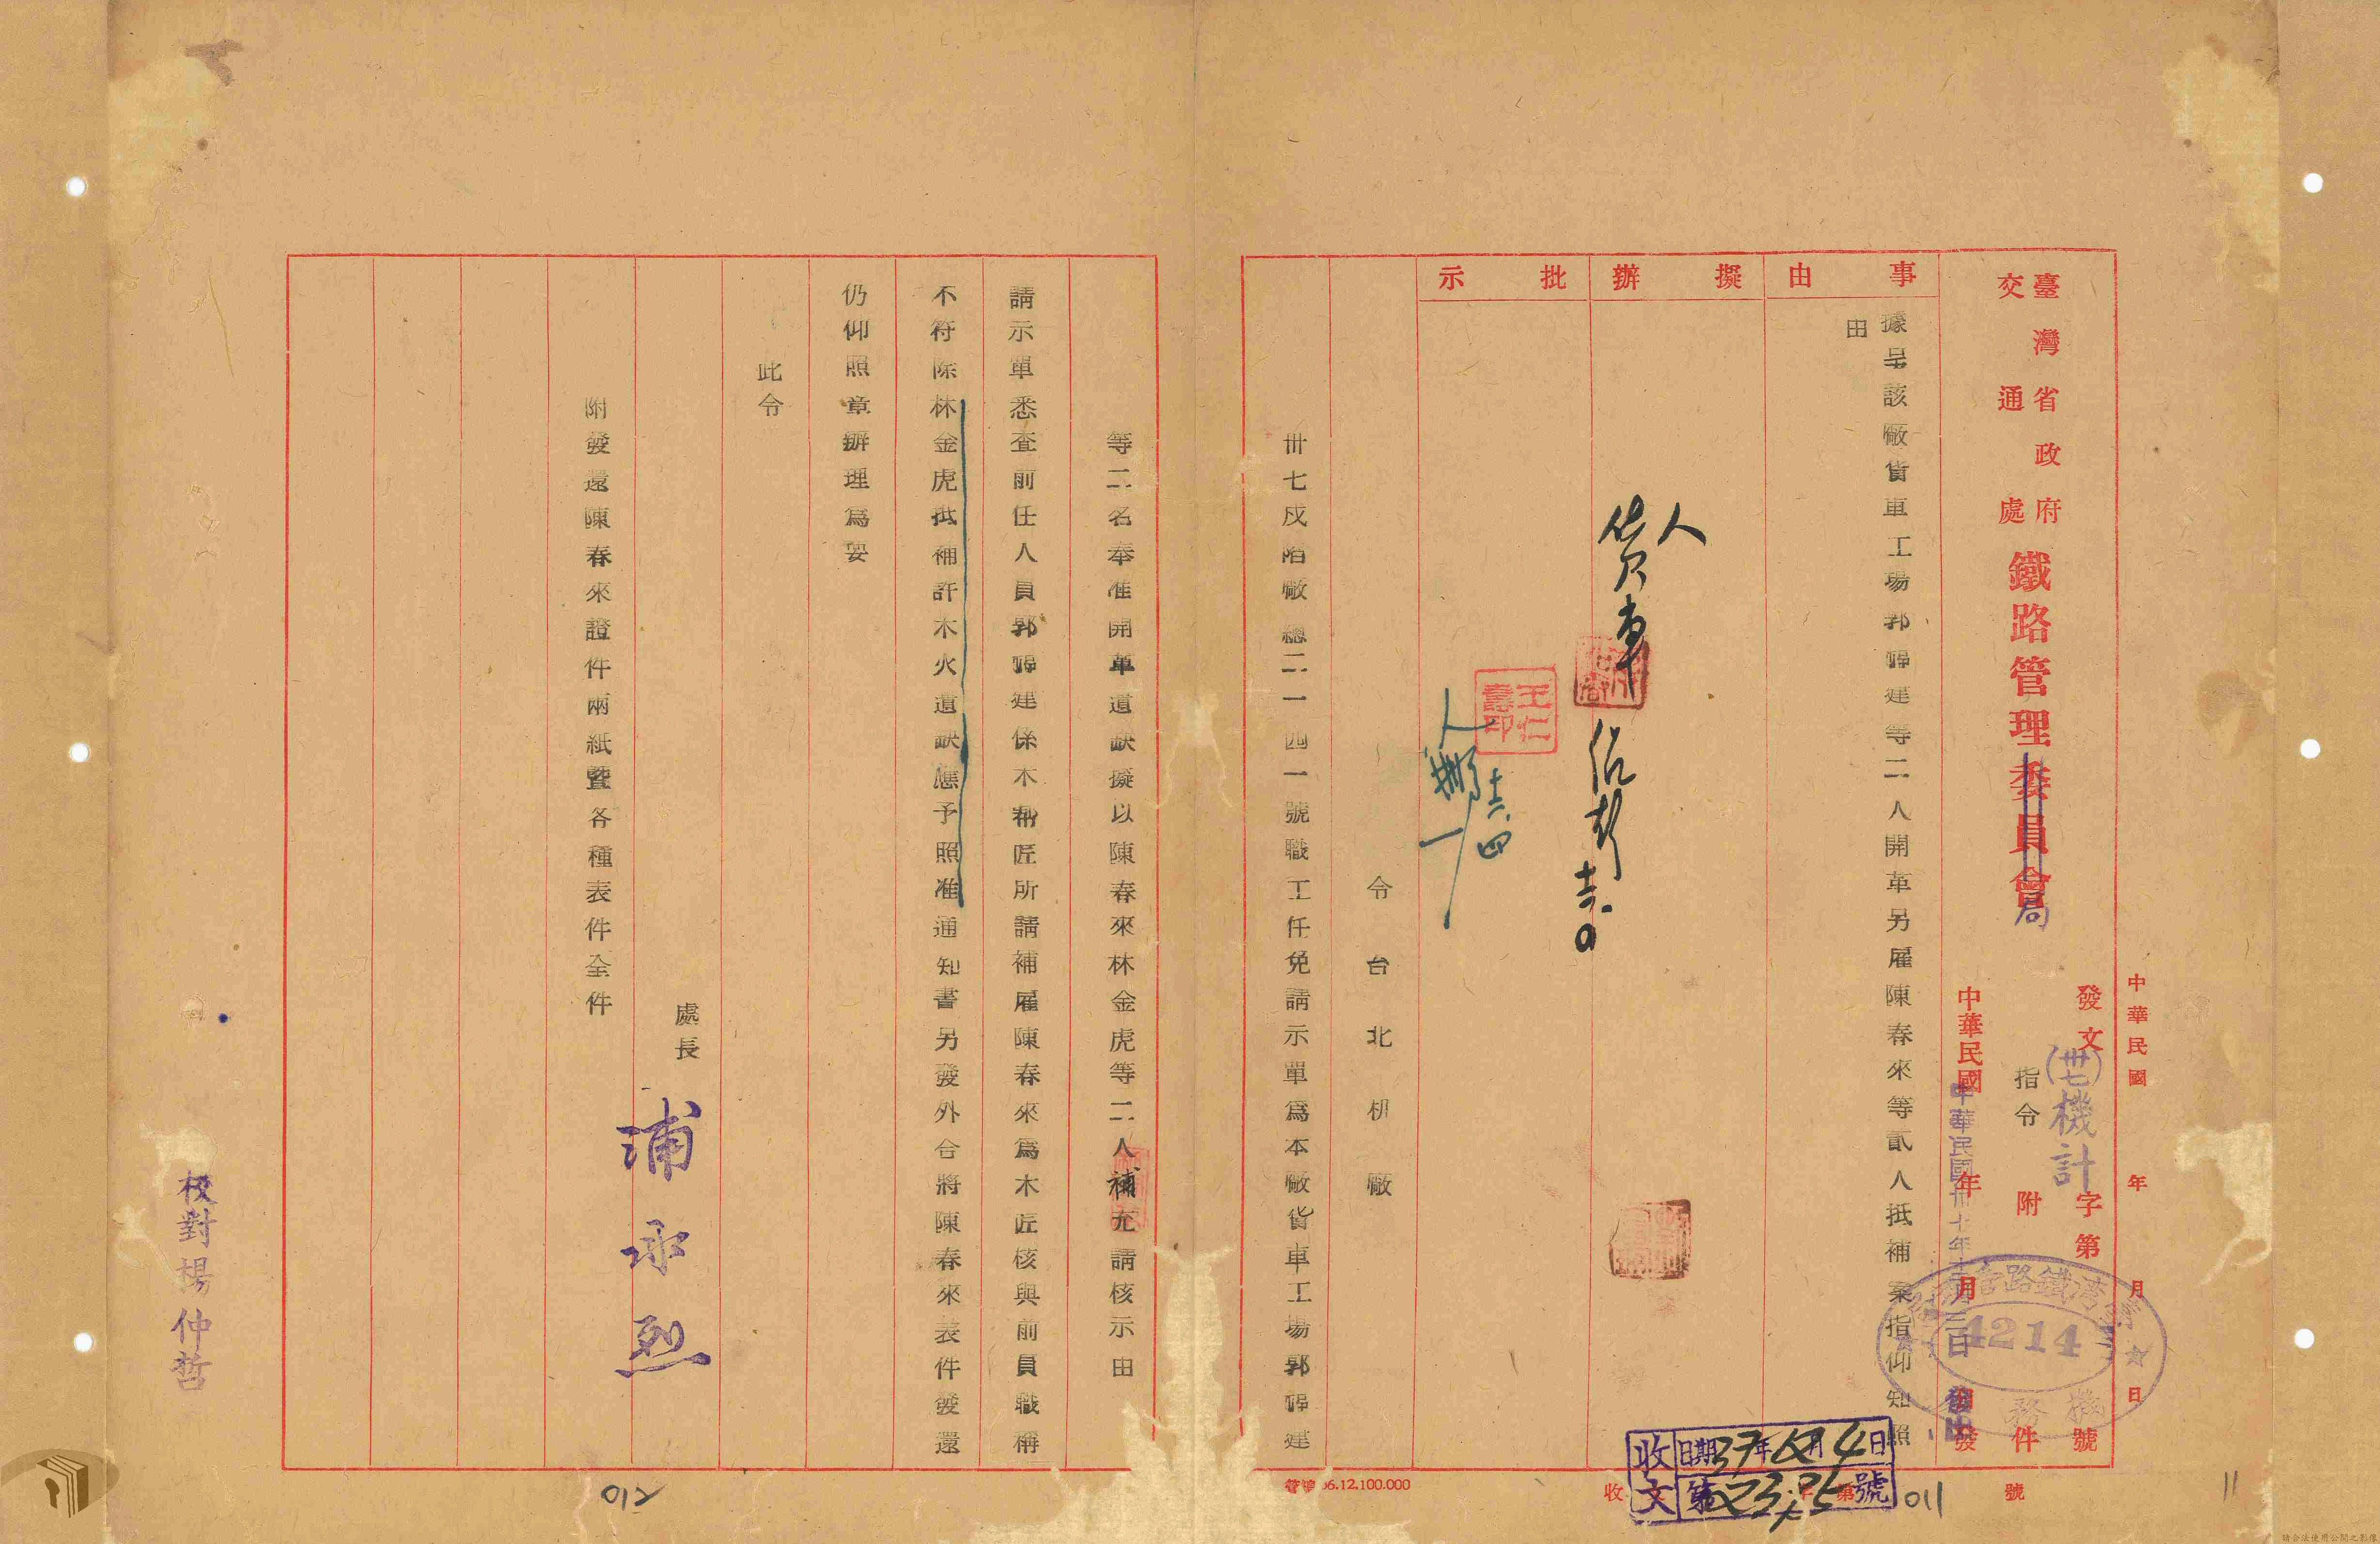 臺灣省政府
交通處
鐵路管理委員會
局
中華民國 年 月 日
發文 字第 號
(卅七)機計
4214
指令 附 件
中華民國 年 月 日
中華民國卅七年十二月三日
事由
擬辦
批示
據呈該廠貨車工場郭福建等二人開革另雇陳春來等貳人抵補案指仰知照
由
人
貨車
王仁壽印
人
十二.四
令 台 北 机 廠
卅七戌陷廠總二一四一號職工任免請示單為本廠貨車工場郭福建
等二名奉准開革遺缺擬以陳春來林金虎等二人補充請核示由
請示單悉查前任人員郭福建係木彫匠所請補雇陳春來為木匠核與前員職稱
不符除林金虎抵補許木火遺缺應予照准通知書另發外合將陳春來表件發還
仍仰照章辦理為妥
此令
處長 浦承烈
附發還陳春來證件兩紙暨各種表件全件
校對楊仲哲
收文
日期37年12月4日
收文 字第 號
36.12.100.000
011
012
11
請合法使用公開之影像